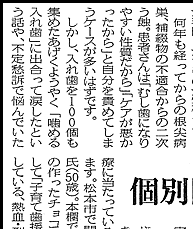 何年も経ってからの根尖病
巣、補綴物の不適合からの二次
う蝕。患者さんは「むし歯になり
やすい体質だから」「ケアが悪か
ったから」と自分を責めてしま
うケースが多いはずです。
しかし、入れ歯を100個も
集めたあげくようやく「噛める
入れ歯」に出会って涙したとい
う話や、不定愁訴で悩んでいた
個別
療に当たってい
ます。松本市で開
氏(50歳)。本欄で
の作ったチョコ
して「子育て歯援
している、熱血